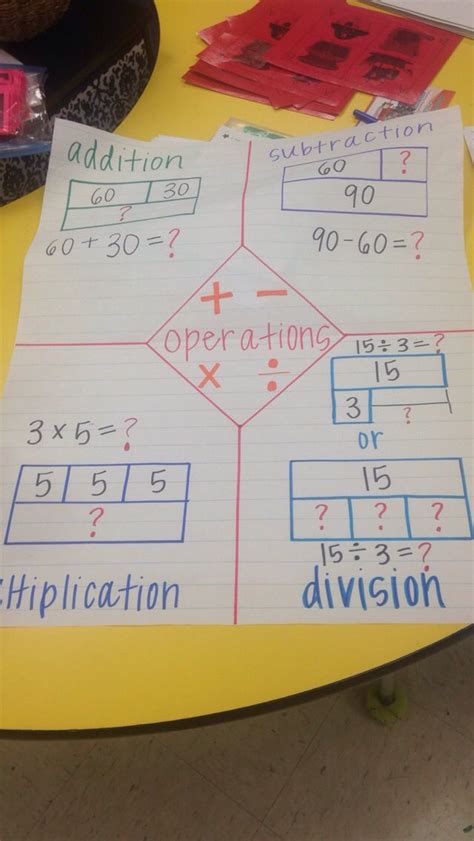 addition
60 30
?
60 + 30 = ?
subtraction
60 ?
90
90 - 60 = ?
+ -
operations
x ÷
3 x 5 = ?
5 5 5
?
Htiplication
15 ÷ 3 = ?
15
3 ?
or
15
? ? ?
15 ÷ 3 = ?
division